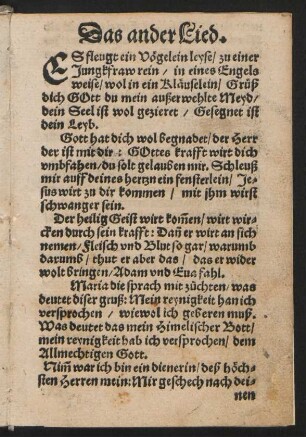 Das ander Lied.
ES fleugt ein Vögelein leyse / zu einer
Jungkfraw rein / in eines Engels
weise / wol in ein Kläuselein / Grüß
dich GOtt du mein außerwehlte Meyd /
dein Seel ist wol gezieret / Gesegnet ist
dein Leyb.
Gott hat dich wol begnadet / der Herr
der ist mit dir : GOttes krafft wirt dich
vmbfahen / du solt gelauben mir. Schleuß
mir auff deines hertzn ein fensterlein / Je-
sus wirt zu dir kommen / mit jhm wirst
schwanger sein.
Der heilig Geist wirt kom̃en / wirt wir-
cken durch sein krafft : Dañ er wirt an sich
nemen / Fleisch vnd Blut so gar / warumb
darumb / thut er aber das / das er wider
wolt bringen / Adam vnd Eua fahl.
Maria die sprach mit züchten / was
deutet diser gruß : Mein reynigkeit han ich
versprochen / wiewol ich geberen muß.
Was deutet das mein Himelischer Bott /
mein reynigkeit hab ich versprochen / dem
Allmechtigen Gott.
Nim̃ war ich bin ein dienerin / deß höch-
sten Herren mein : Mir geschech nach dei-
nen